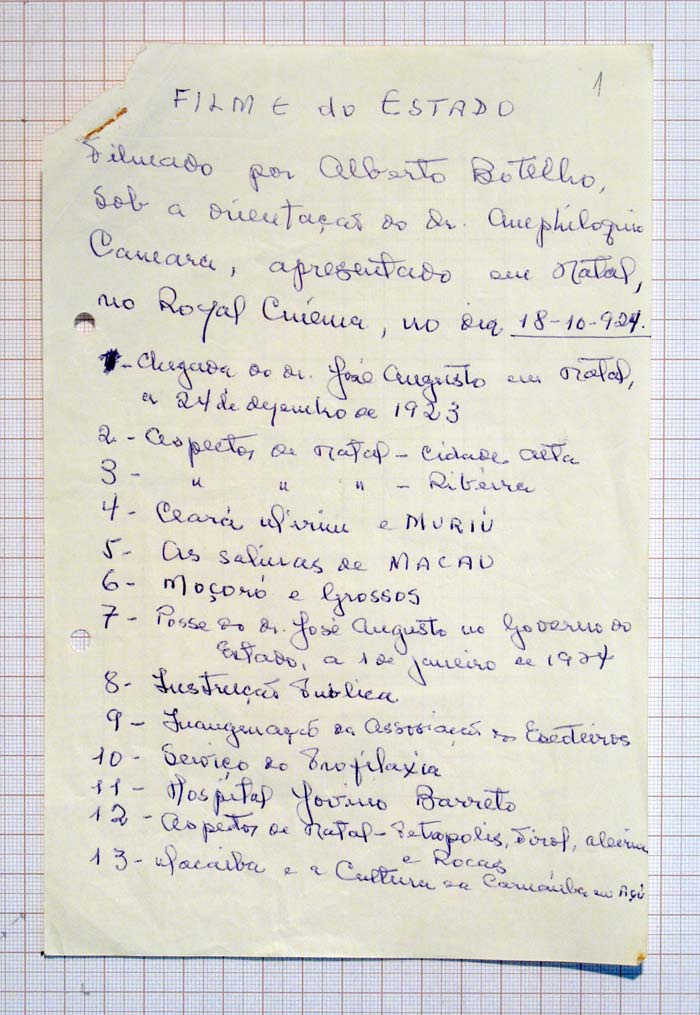 1
FILME do ESTADO
Filmado por Alberto Botelho,
sob a orientação do Dr. Amphiloquio
Camara, apresentado em Natal,
no Royal Cinema, no dia 18-10-924.
1 - Chegada do dr. José Augusto em Natal,
a 24 de dezembro de 1923
2 - Aspectos de Natal - Cidade Alta
3 - " " " - Ribeira
4 - Ceará Mirim e MURIÚ
5 - As salinas de MACAU
6 - Moçoró e Grossos
7 - Posse do dr. José Augusto no Governo do
Estado, a 1 de janeiro de 1924
8 - Instrução Publica
9 - Inauguração da Associação dos Escoteiros
10 - Serviço de Profilaxia
11 - Hospital Jovino Barreto
12 - Aspectos de Natal - Petropolis, Tirol, Alecrim
e Rocas
13 - Macaiba e a Cultura da Carnaúba no Açú